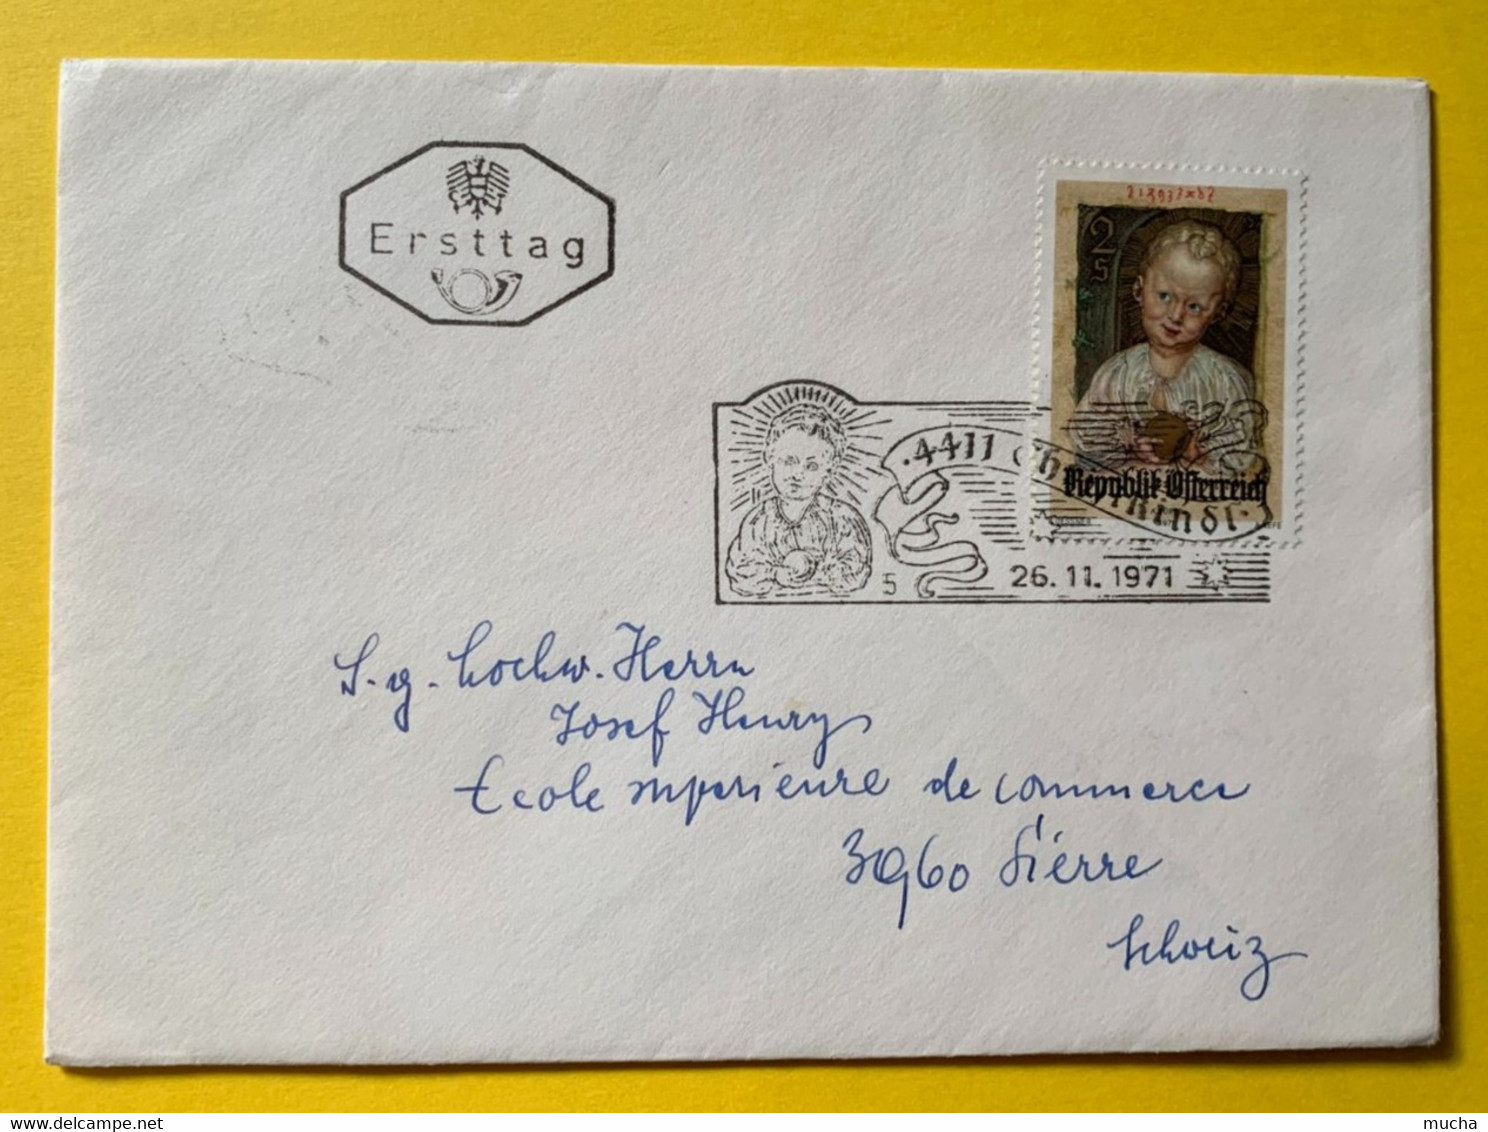 Ersttag
2
S
Republik Österreich
· 4411 Christkindl ·
5
26.11.1971
S. g. hochw. Herrn
Josef Henry
École supérieure de commerce
3960 Sierre
Schweiz
delcampe.net
mucha